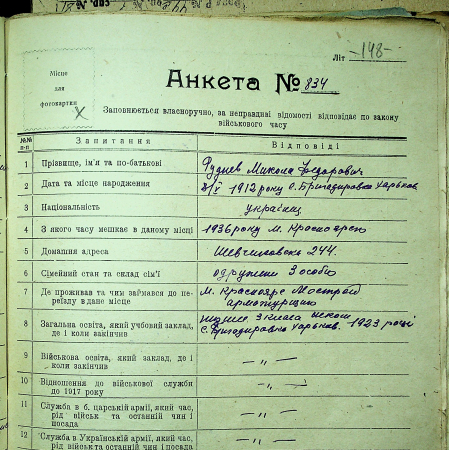 Літ
-148-
Місце
для
фотокартки
Анкета № 834
Заповнюється власноручно, за неправдиві відомості відповідає по закону
військового часу
№№
п-п
Запитання
Відповіді
1 Прізвище, ім'я та по-батькові Руднев Микола Федорович
2 Дата та місце народження 1912 року С. Бригадировка Харьков
3 Національність украінец
4 З якого часу мешкає в даному місці 1936 року м. Красноярск
5 Домашня адреса 244.
6 Сімейний стан та склад сім'ї одружений 3 особи
7 Де проживав та чим займався до пе-
реїзду в дане місце
м. Красноярс Мострой
арматурщик
8 Загальна освіта, який учбовий заклад,
де і коли закінчив
3 класа
с. Бригадировка Харьков. 1923 році
9 Військова освіта, який заклад, де і
коли закінчив
— „ —
10 Відношення до військової служби
до 1917 року
— „ —
11 Служба в б. царській армії, який час,
рід військ та останній чин і
посада
— „ —
12 Служба в Українській армії, який час,
рід військ та останній чин і посада
— „ —